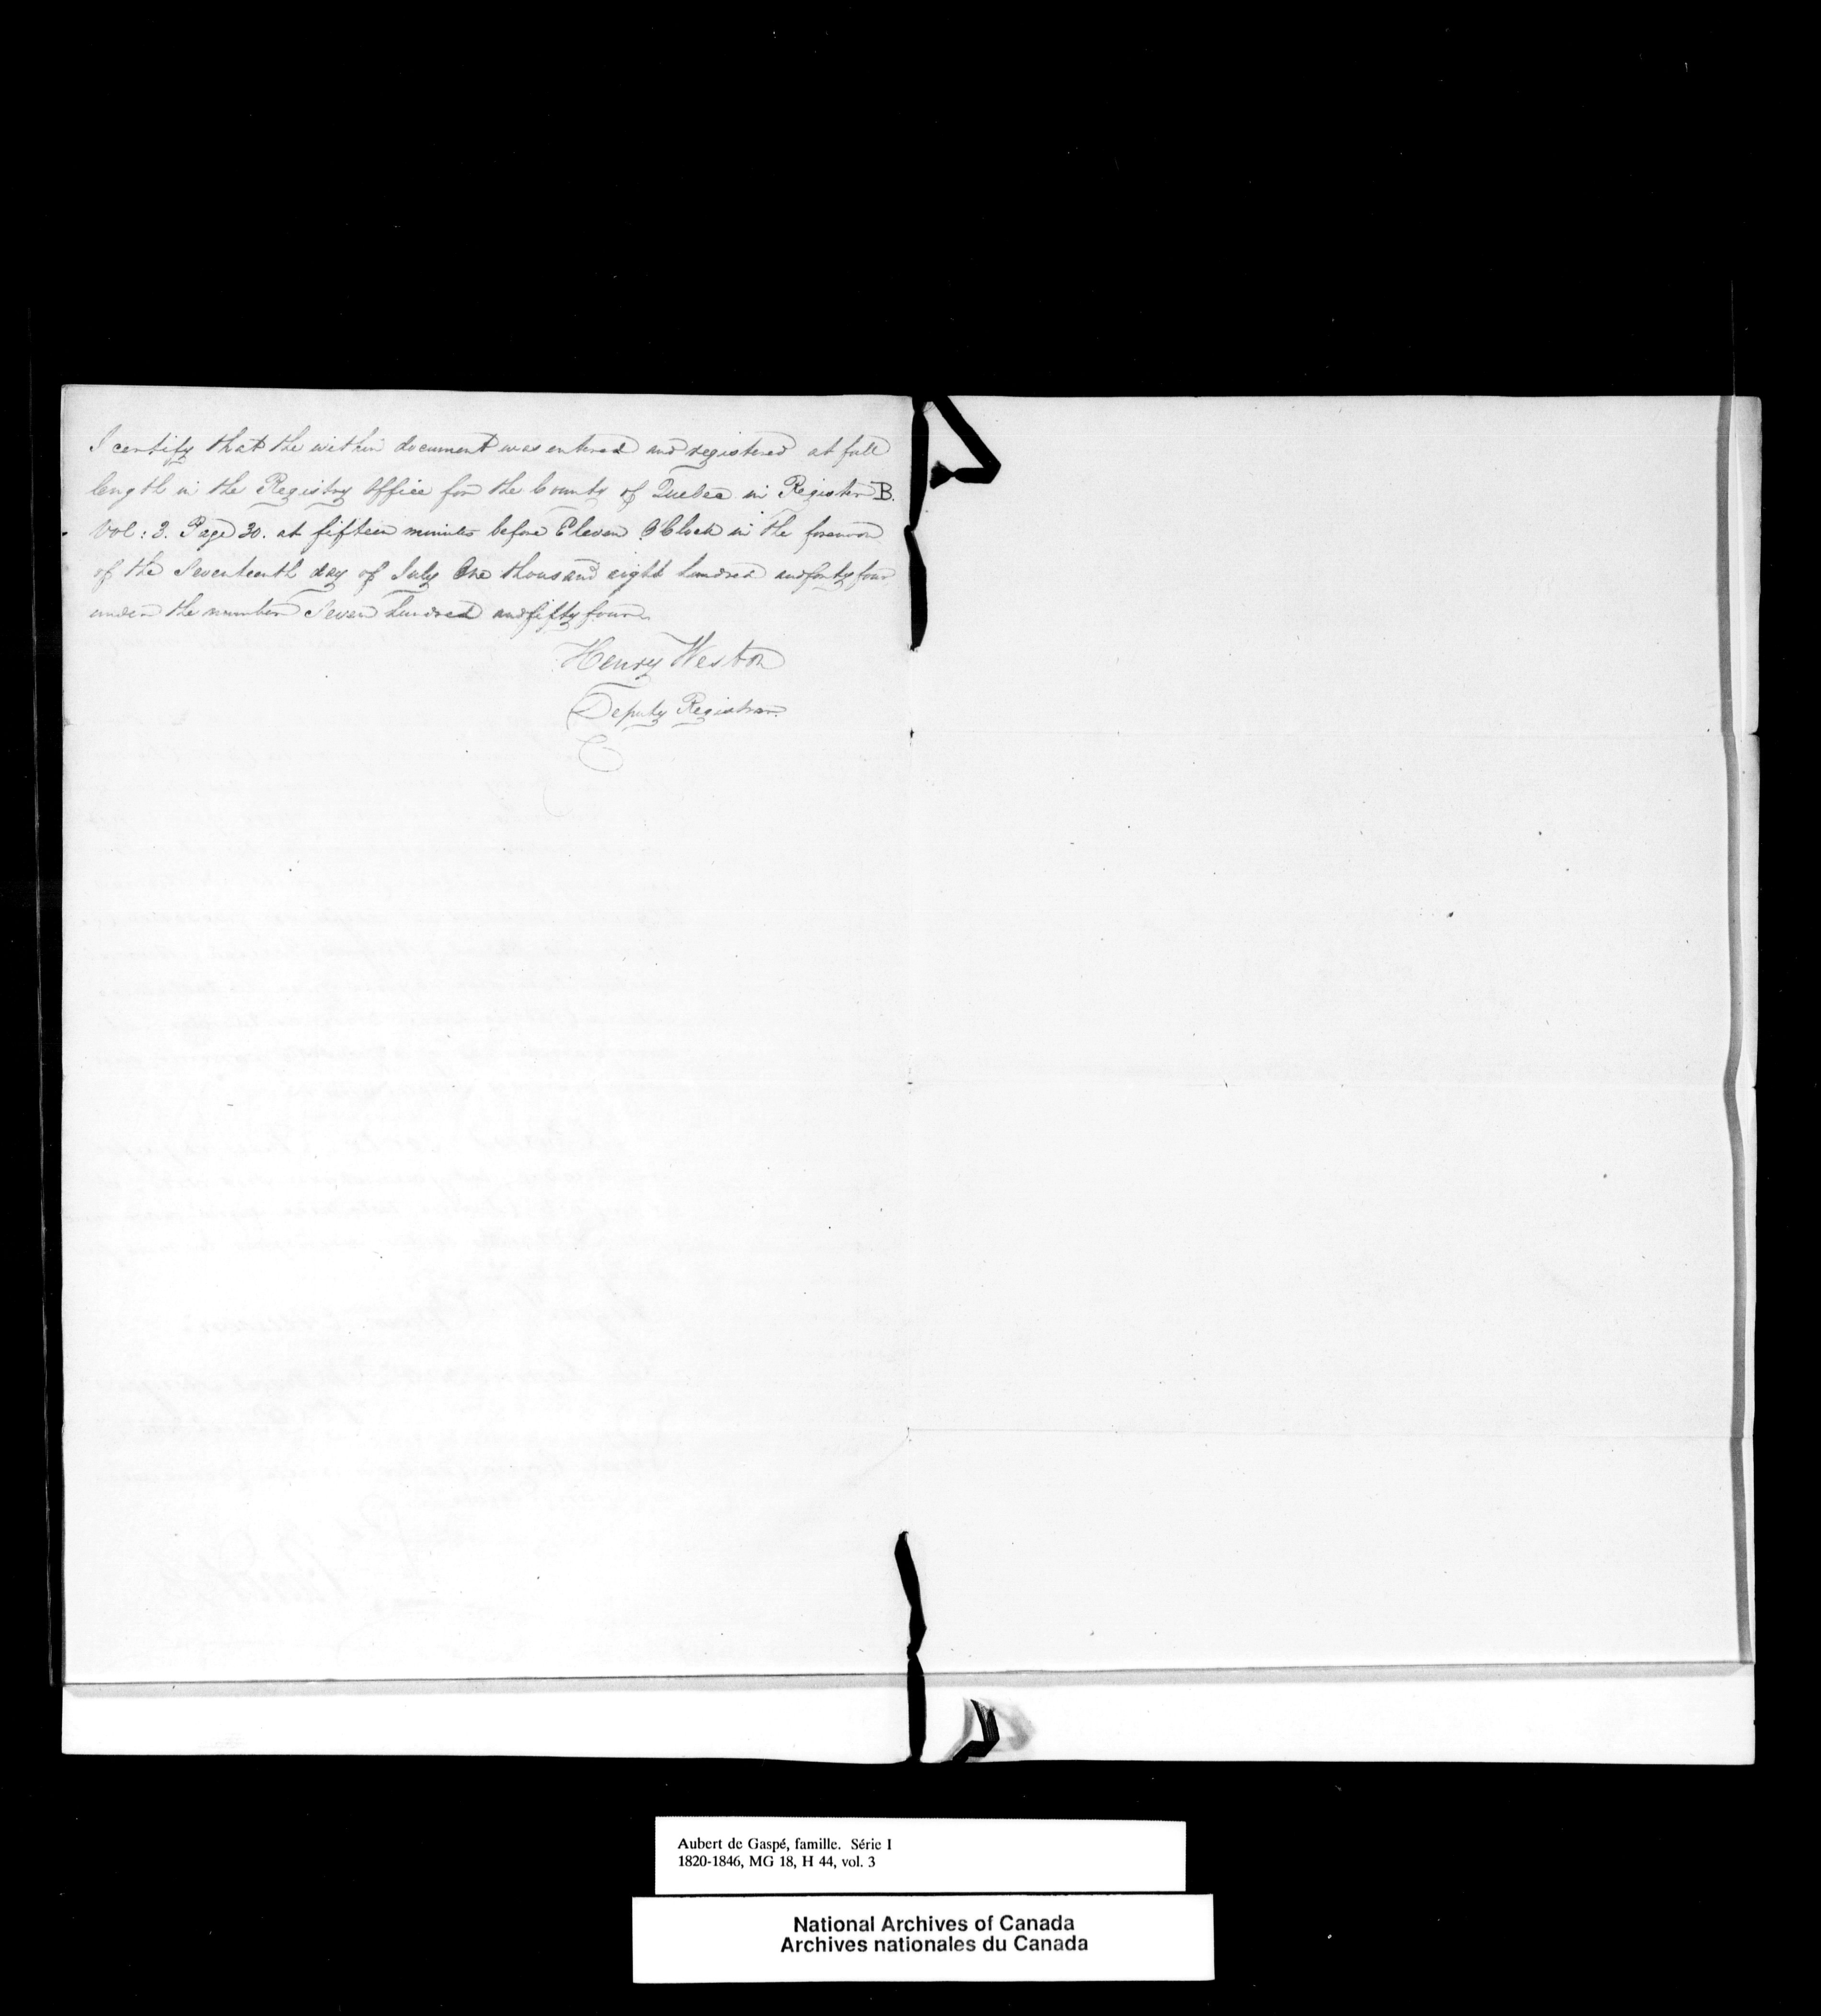 I certify that the within document was entered and registered at full
length in the Registry Office for the County of Quebec in Register B.
Vol: 3. Page 30. at fifteen minutes before Eleven O'Clock in the forenoon
of the Seventeenth day of July One thousand eight hundred and forty four
under the number Seven hundred and fifty four.
Henry Weston
Deputy Registrar.
Aubert de Gaspé, famille. Série I
1820-1846, MG 18, H 44, vol. 3
National Archives of Canada
Archives nationales du Canada